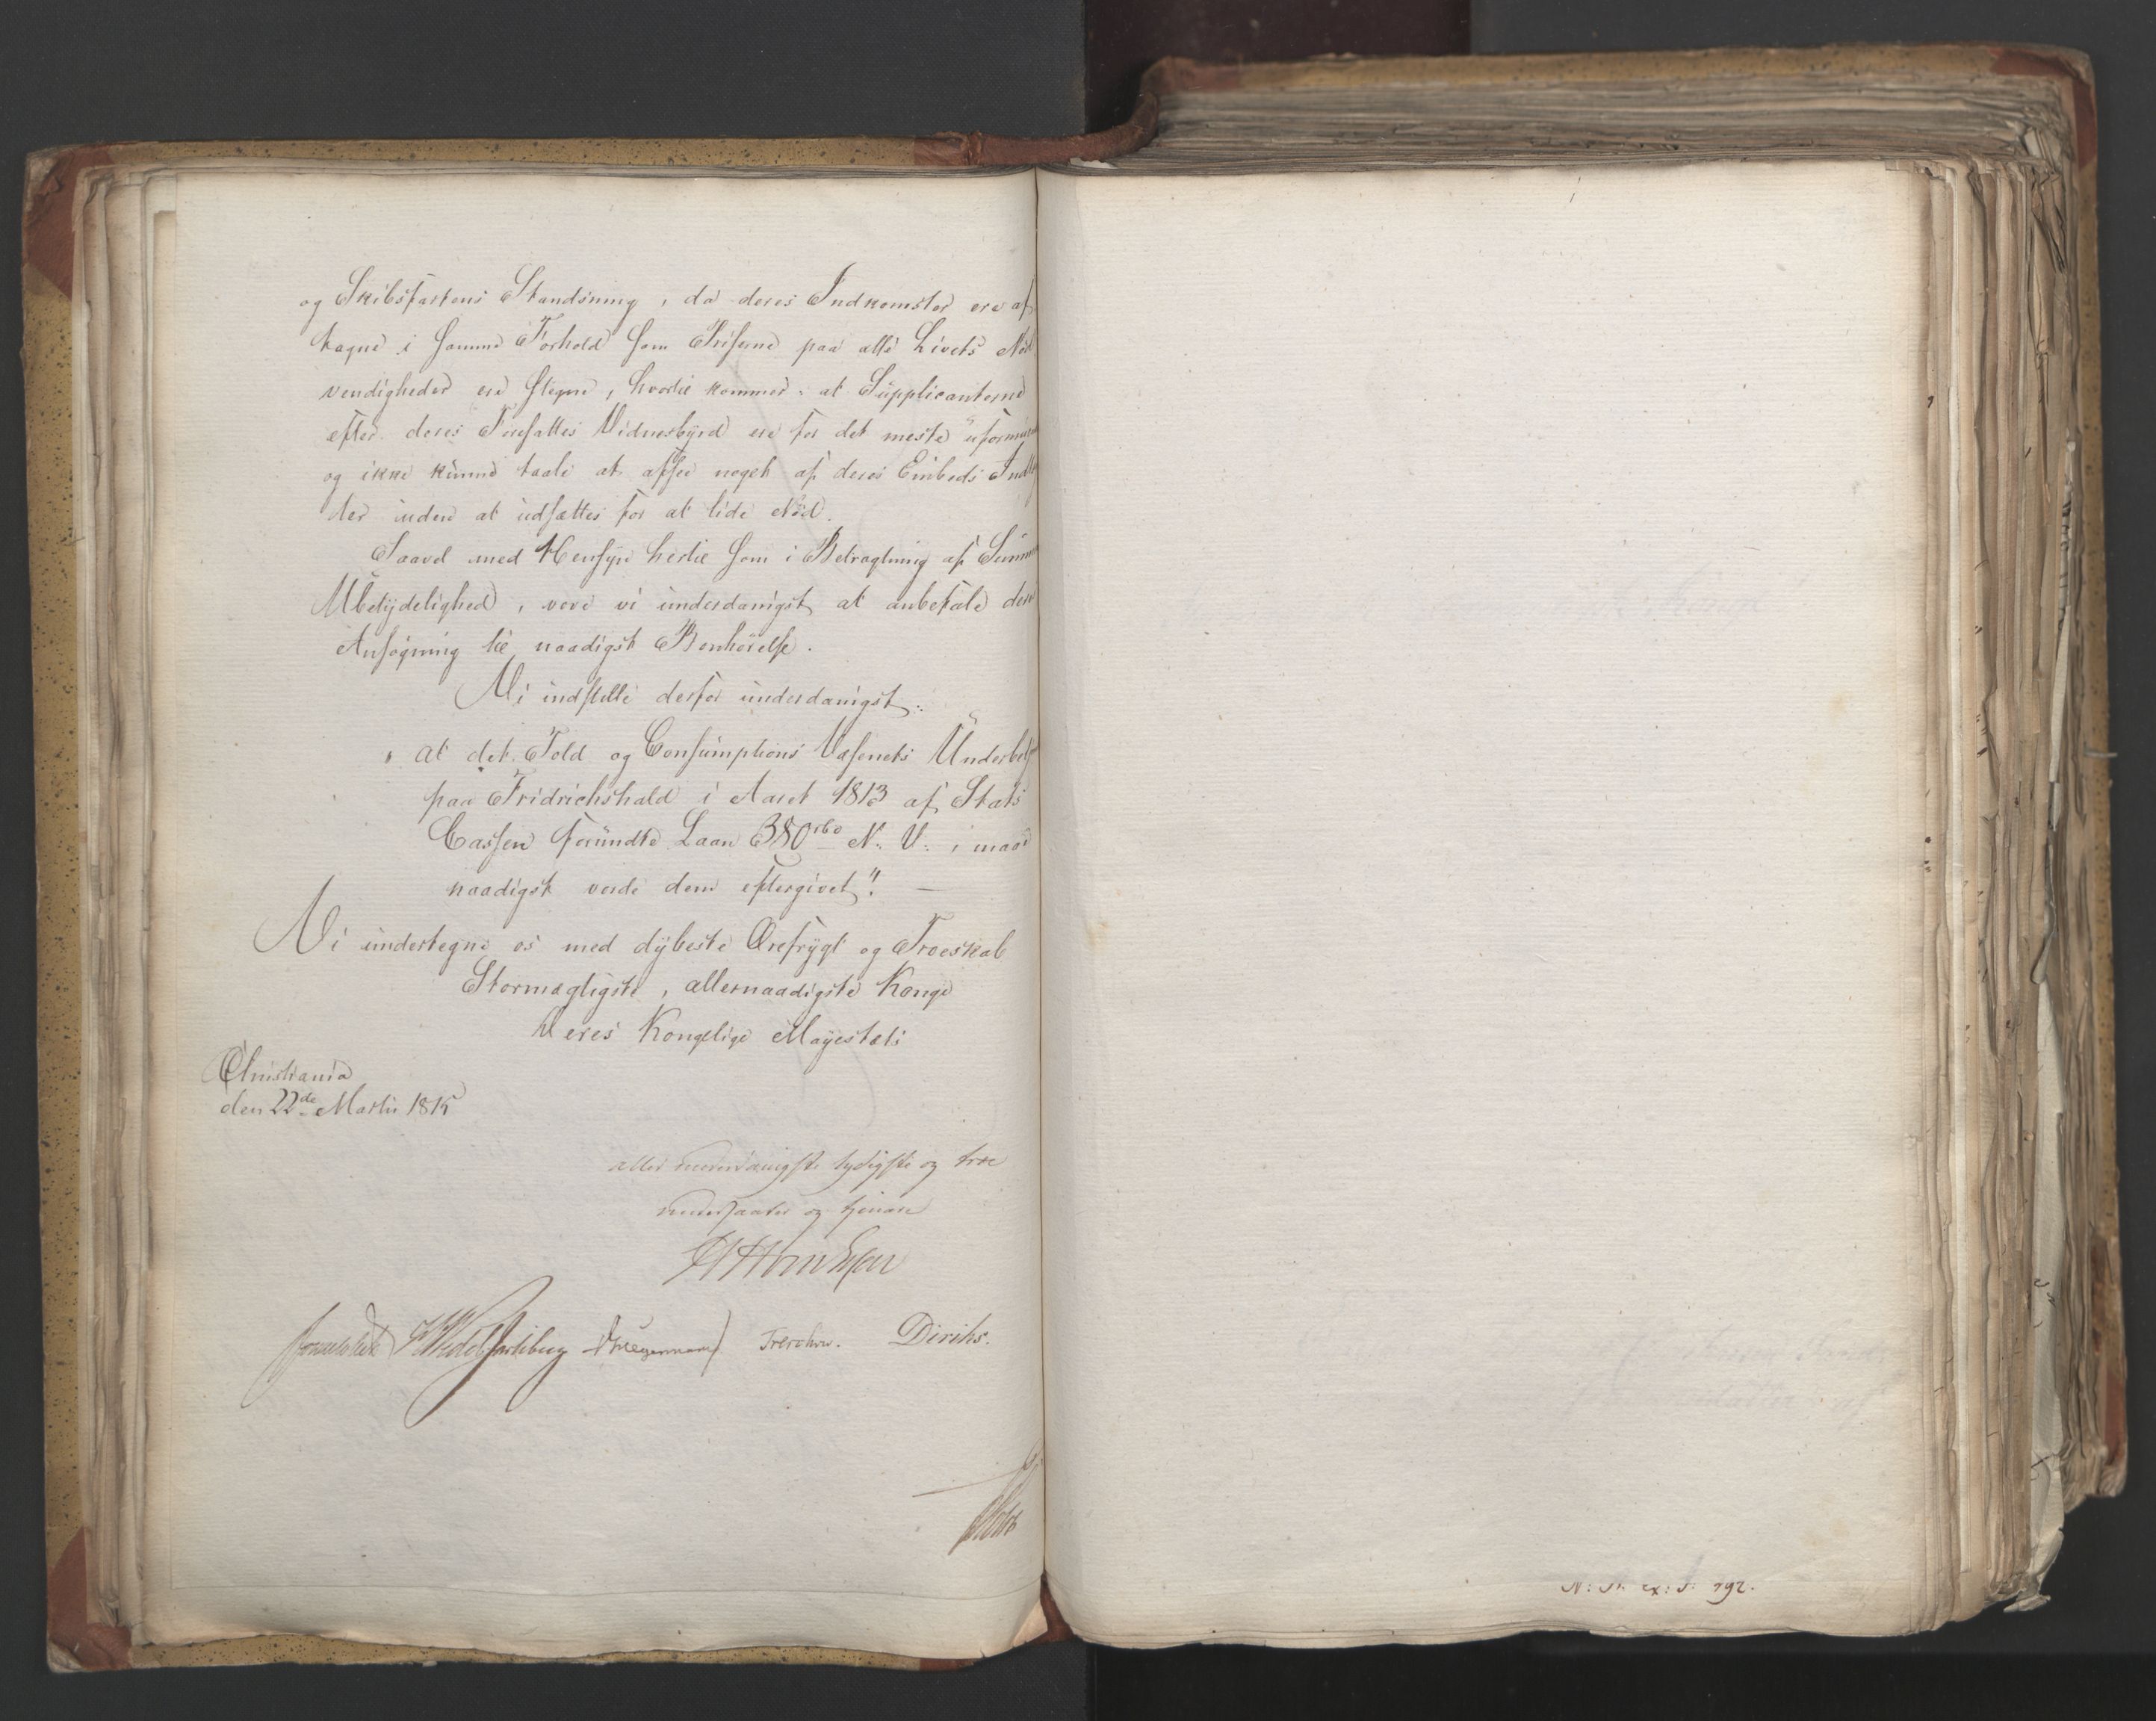 og Skibsfartens Standsning, da deres Indkomster ere af
tagne i samme Forhold som Priserne paa alle Livets Nød
vendigheder ere stegne, hvortil kommer: at Supplicanterne
efter deres Foresattes Vidnesbyrd ere for det meste uformu
og ikke kunne taale at afsee noget af deres Embeds Ind
ter uden at udsættes for at lide Nød.
Saavel med Hensyn hertil som i Betragtning af Summ
Ubetydelighed, vove vi underdanigst at anbefale den
Ansøgning til naadigst Bønhørelse.
Vi indstille derfor underdanigst:
" at det Told og Consumptions Væsenets Underbe
paa Fridrichshald i Aaret 1813 af Stats
Cassen forundte Laan 380 rbd N: V:, maae
naadigst vorde dem eftergivet". —
Vi undertegne os med dybeste Ærefrygt og Troeskab
Stormægtigste, allernaadigste Konge
Deres Kongelige Mayestæts
Christiania
den 22de Martii 1815
aller underdanigste lydigste og troe
undersaatter og tjenere
Sommerhielm HWedel Jarlsberg DHegermann Treschow. Diriks.
Holst
N: St. ex: S: 792.